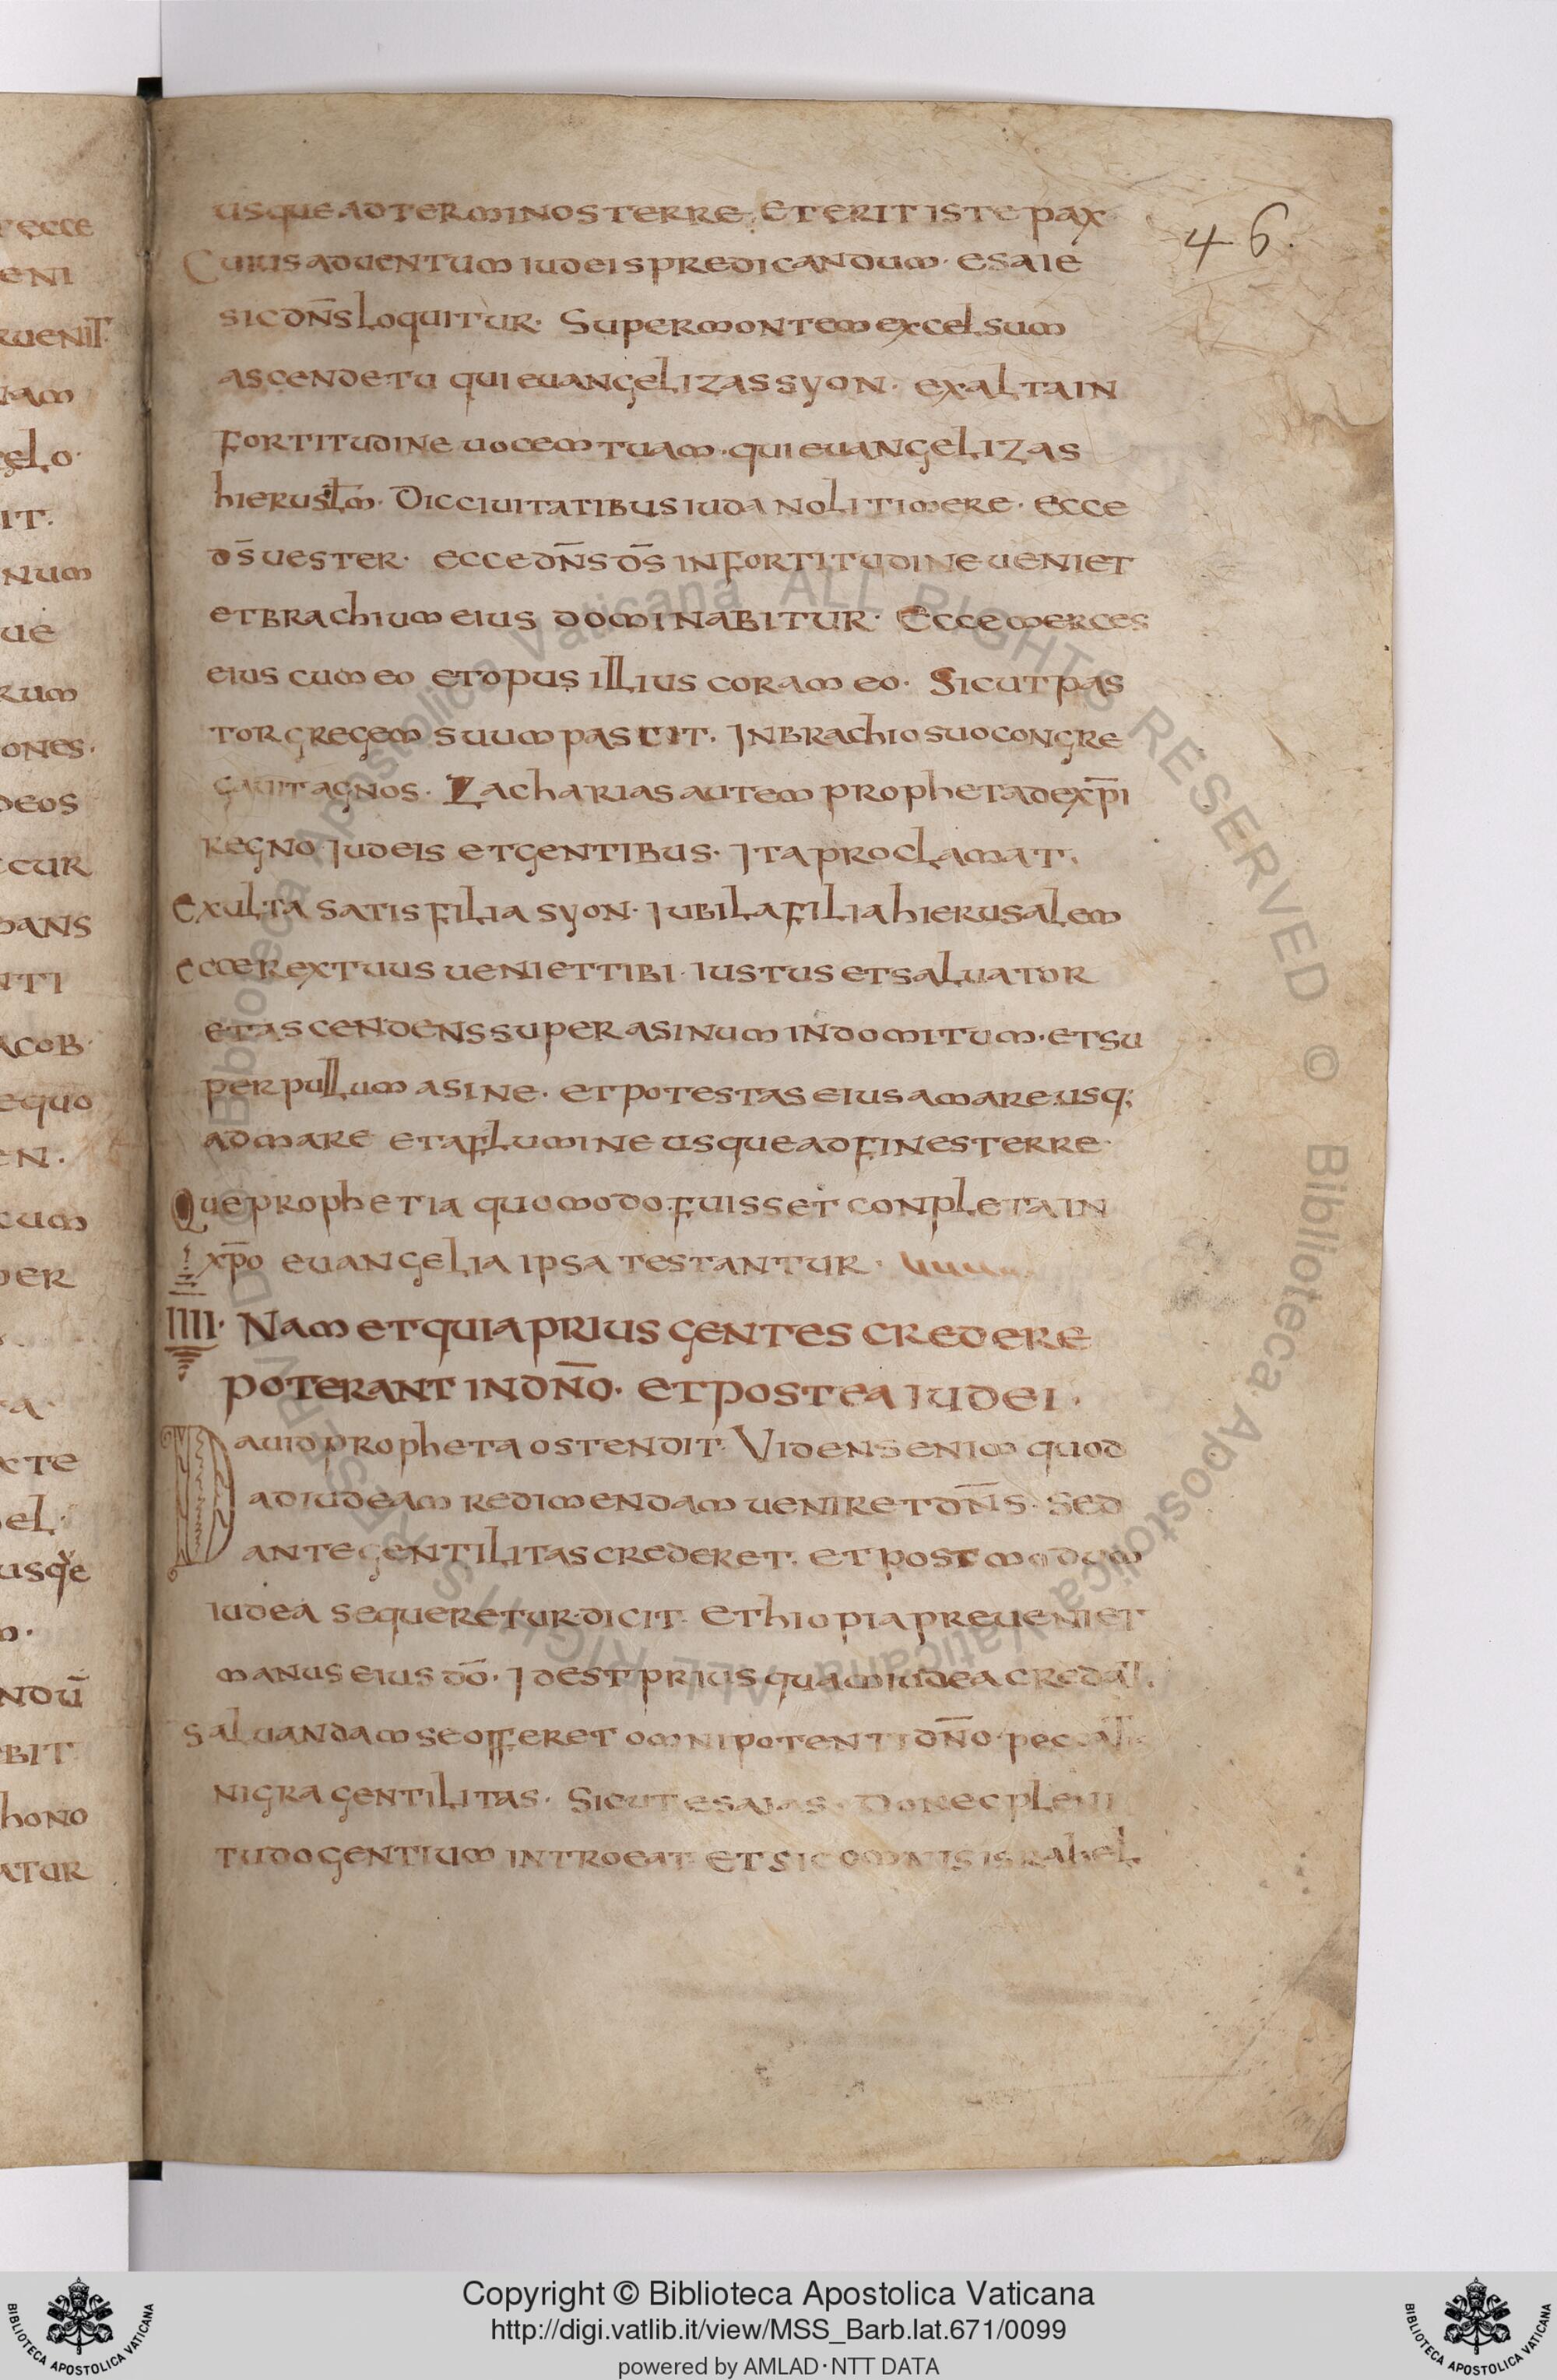 usque ad terminos terre. Et erit iste pax
Cuius aduentum iudeis predicandum · esaie
sic dn̄s loquitur · Super montem excelsum
ascende tu qui euangelizas syon · exalta in
fortitudine uocem tuam · qui euangelizas
hierusl̄m · Dic ciuitatibus iuda noli timere · ecce
ds̄ uester · ecce dn̄s ds̄ in fortitudine ueniet
et brachium eius dominabitur · Ecce merces
eius cum eo et opus illius coram eo · Sicut pas
tor gregem suum pascit · In brachio suo congre
gauit agnos · Zacharias autem propheta de xp̄i
regno Iudeis et gentibus · Ita proclamat ·
exulta satis filia syon · Iubila filia hierusalem
ecce rex tuus ueniet tibi · iustus et saluator
et ascendens super asinum indomitum · et su
per pullum asine · et potestas eius a mare usq;
ad mare et a flumine usque ad fines terre ·
Que prophetia quomodo fuisset conpleta in
xp̄o euangelia ipsa testantur ·
IIII · Nam et quia prius gentes credere
poterant in dn̄o · et postea iudei ·
Dauid propheta ostendit · Videns enim quod
ad iudeam redimendam ueniret dn̄s · sed
ante gentilitas crederet · et post modum
iudea sequeretur · dicit · ethiopia preueniet
manus eius dō · Id est prius quam iudea credat ·
saluandam se offeret omnipotenti dn̄o peccatis
nigra gentilitas · Sicut esaias · Donec pleni
tudo gentium introeat et sic omnis israhel
46.
ecce
eni
uenit
iam
gelo ·
it ·
num
ue
rum
ones ·
deos
cur
nti
acob ·
equo
en ·
cum
per
a ·
xte
el ·
usque
ndū
bit
hono
atur
Copyright © Biblioteca Apostolica Vaticana
http://digi.vatlib.it/view/MSS_Barb.lat.671/0099
powered by AMLAD·NTT DATA
BIBLIOTECA APOSTOLICA VATICANA
BIBLIOTECA APOSTOLICA VATICANA